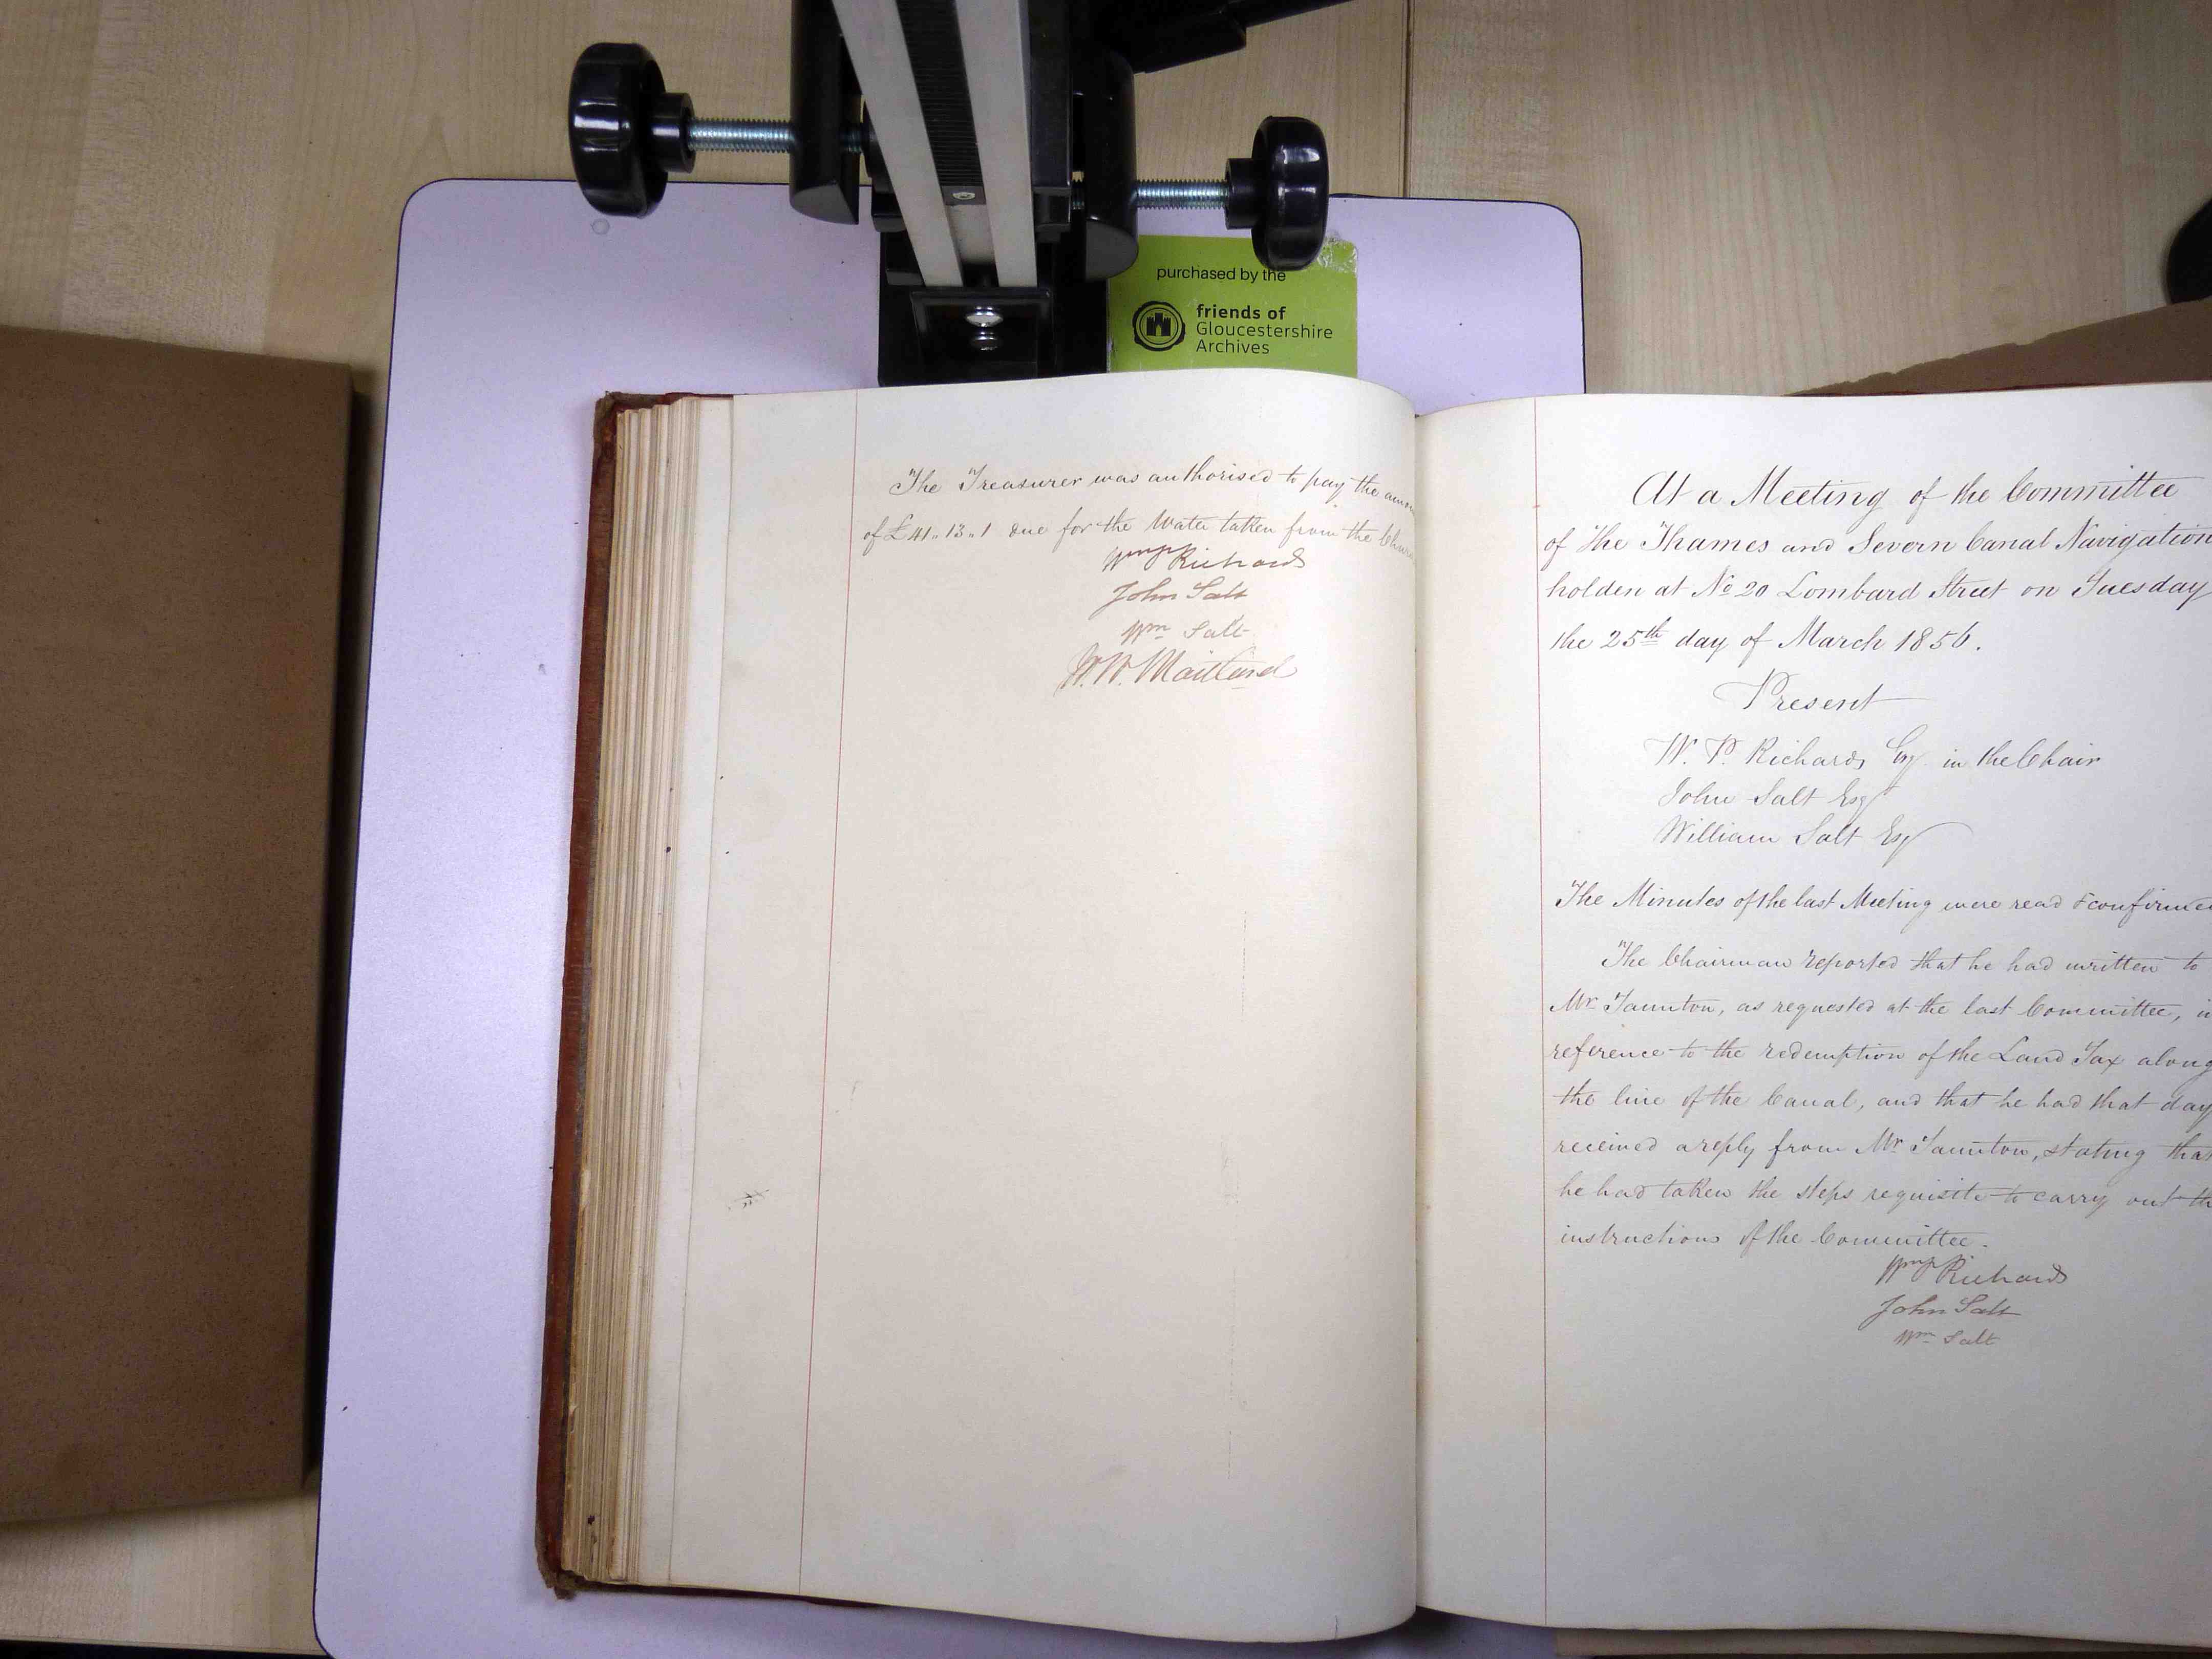 purchased by the
friends of
Gloucestershire
Archives
The Treasurer was authorised to pay the
of £41.. 13.. 1 due for the Water taken from the
Wm P Richards
John Salt
Wm Salt
W. W. Maitland
At a Meeting of the Committee
of the Thames and Severn Canal Navigation
holden at No 20 Lombard Street on Tuesday
the 25th day of March 1856.
Present
W. P. Richards Esq in the Chair
John Salt Esq
William Salt Esq
The Minutes of the last Meeting were read & confirmed
The Chairman reported that he had written to
Mr Taunton, as requested at the last Committee, in
reference to the redemption of the Land Tax along
the line of the Canal, and that he had that day
received a reply from Mr Taunton, stating that
he had taken the steps requisite to carry out the
instructions of the Committee.
Wm P Richards
John Salt
Wm Salt